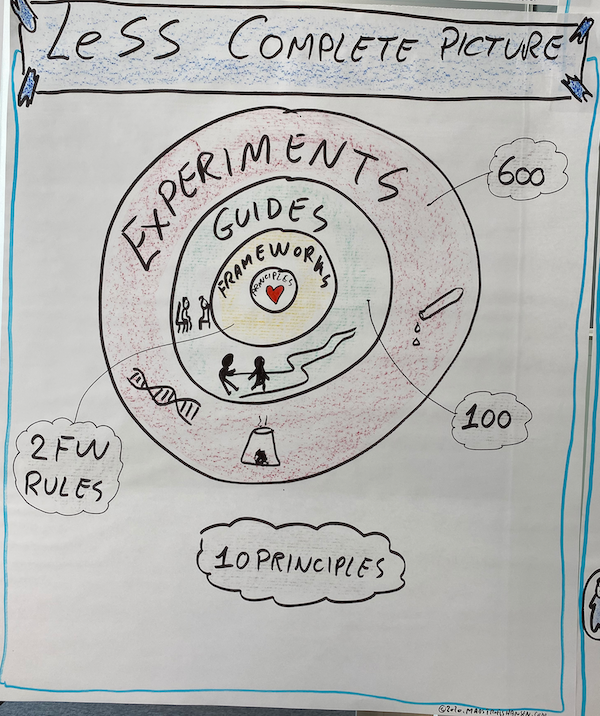 LeSS COMPLETE PICTURE
EXPERIMENTS
600
GUIDES
FRAMEWORKS
PRINCIPLES
100
2 FW
RULES
10 PRINCIPLES